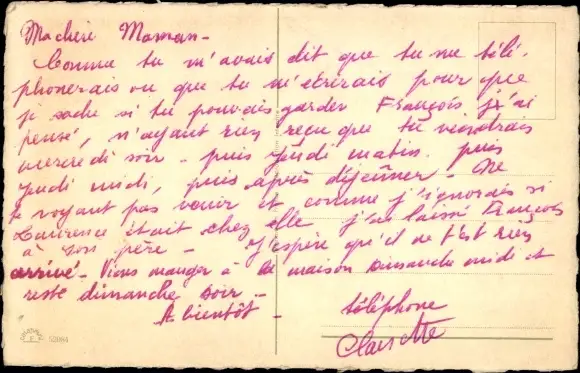 Ma chère Maman -
Comme tu m'avais dit que tu me télé-
phonerais ou que tu m'écrirais pour que
je sache si tu pouvais garder François j'ai
pensé, n'ayant rien reçu que tu viendrais
mercredi soir - puis jeudi matin. puis
jeudi midi, puis après déjeuner - Ne
te voyant pas venir et comme j'ignorais si
Laurence était chez elle j'ai laissé François
à son père - J'espère qu'il ne t'est rien
arrivé - Viens manger à la maison Dimanche midi et
reste dimanche soir -
A bientôt - téléphone
Clairette